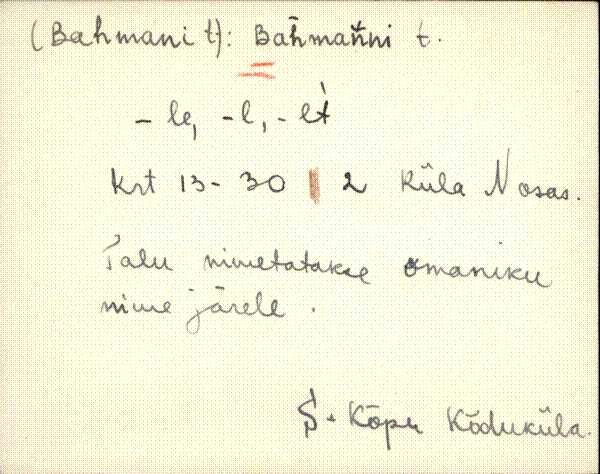 (Bahmani t): Bahmanni t.
- le, - l, - lt
Krt 13 - 30 | 2 Küla Nosas.
Talu nimetatakse omaniku
nime järele.
S. - Kõpu Kõduküla.